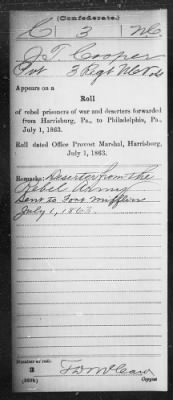 (Confederate.)
C 3 NC.
J. T. Cooper
Pvt 3 Regt N C T
Appears on a
Roll
of rebel prisoners of war and deserters forwarded
from Harrisburg, Pa., to Philadelphia, Pa.,
July 1, 1863.
Roll dated Office Provost Marshal, Harrisburg,
July 1, 1863.
Remarks: Deserter from the
Rebel Army
Sent to Fort Mifflin
July 1, 1863.
Number of roll:
3
Copyist.